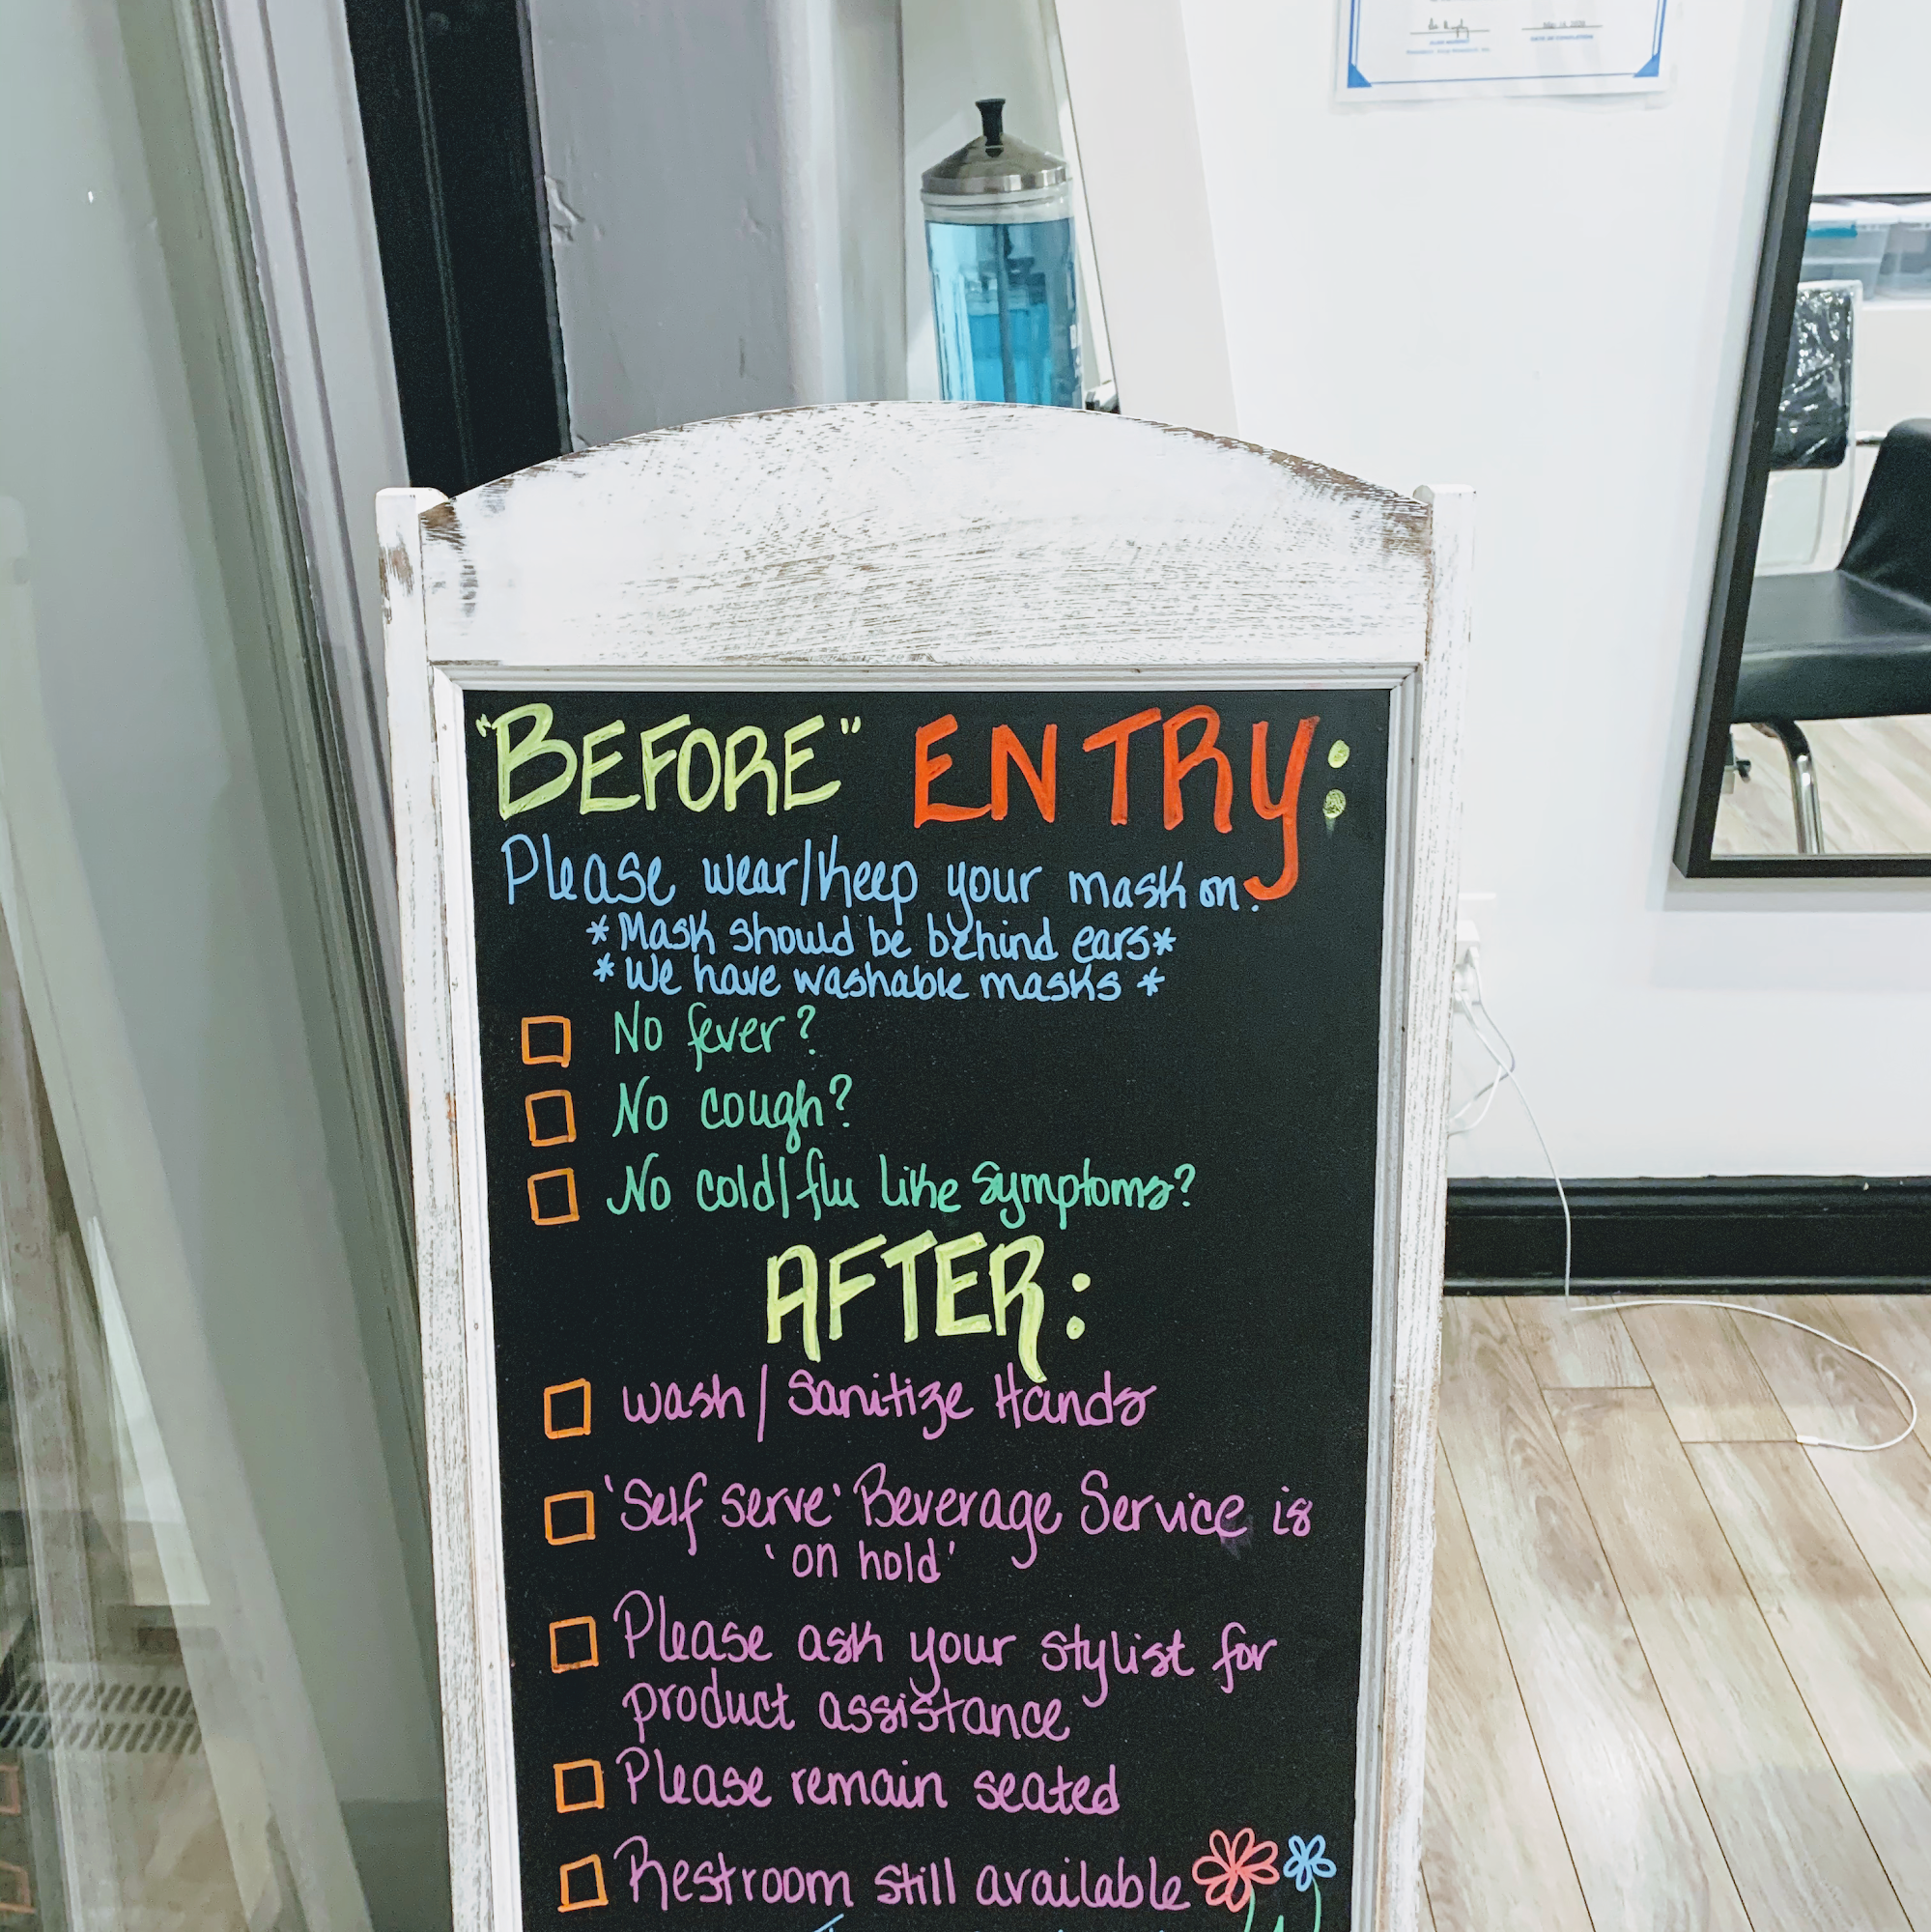 "BEFORE" ENTRY:
Please wear/keep your mask on.
*Mask should be behind ears*
*We have washable masks*
No fever?
No cough?
No cold/flu like symptoms?
AFTER:
wash/Sanitize Hands
'Self serve' Beverage Service is
'on hold'
Please ask your stylist for
product assistance
Please remain seated
Restroom still available